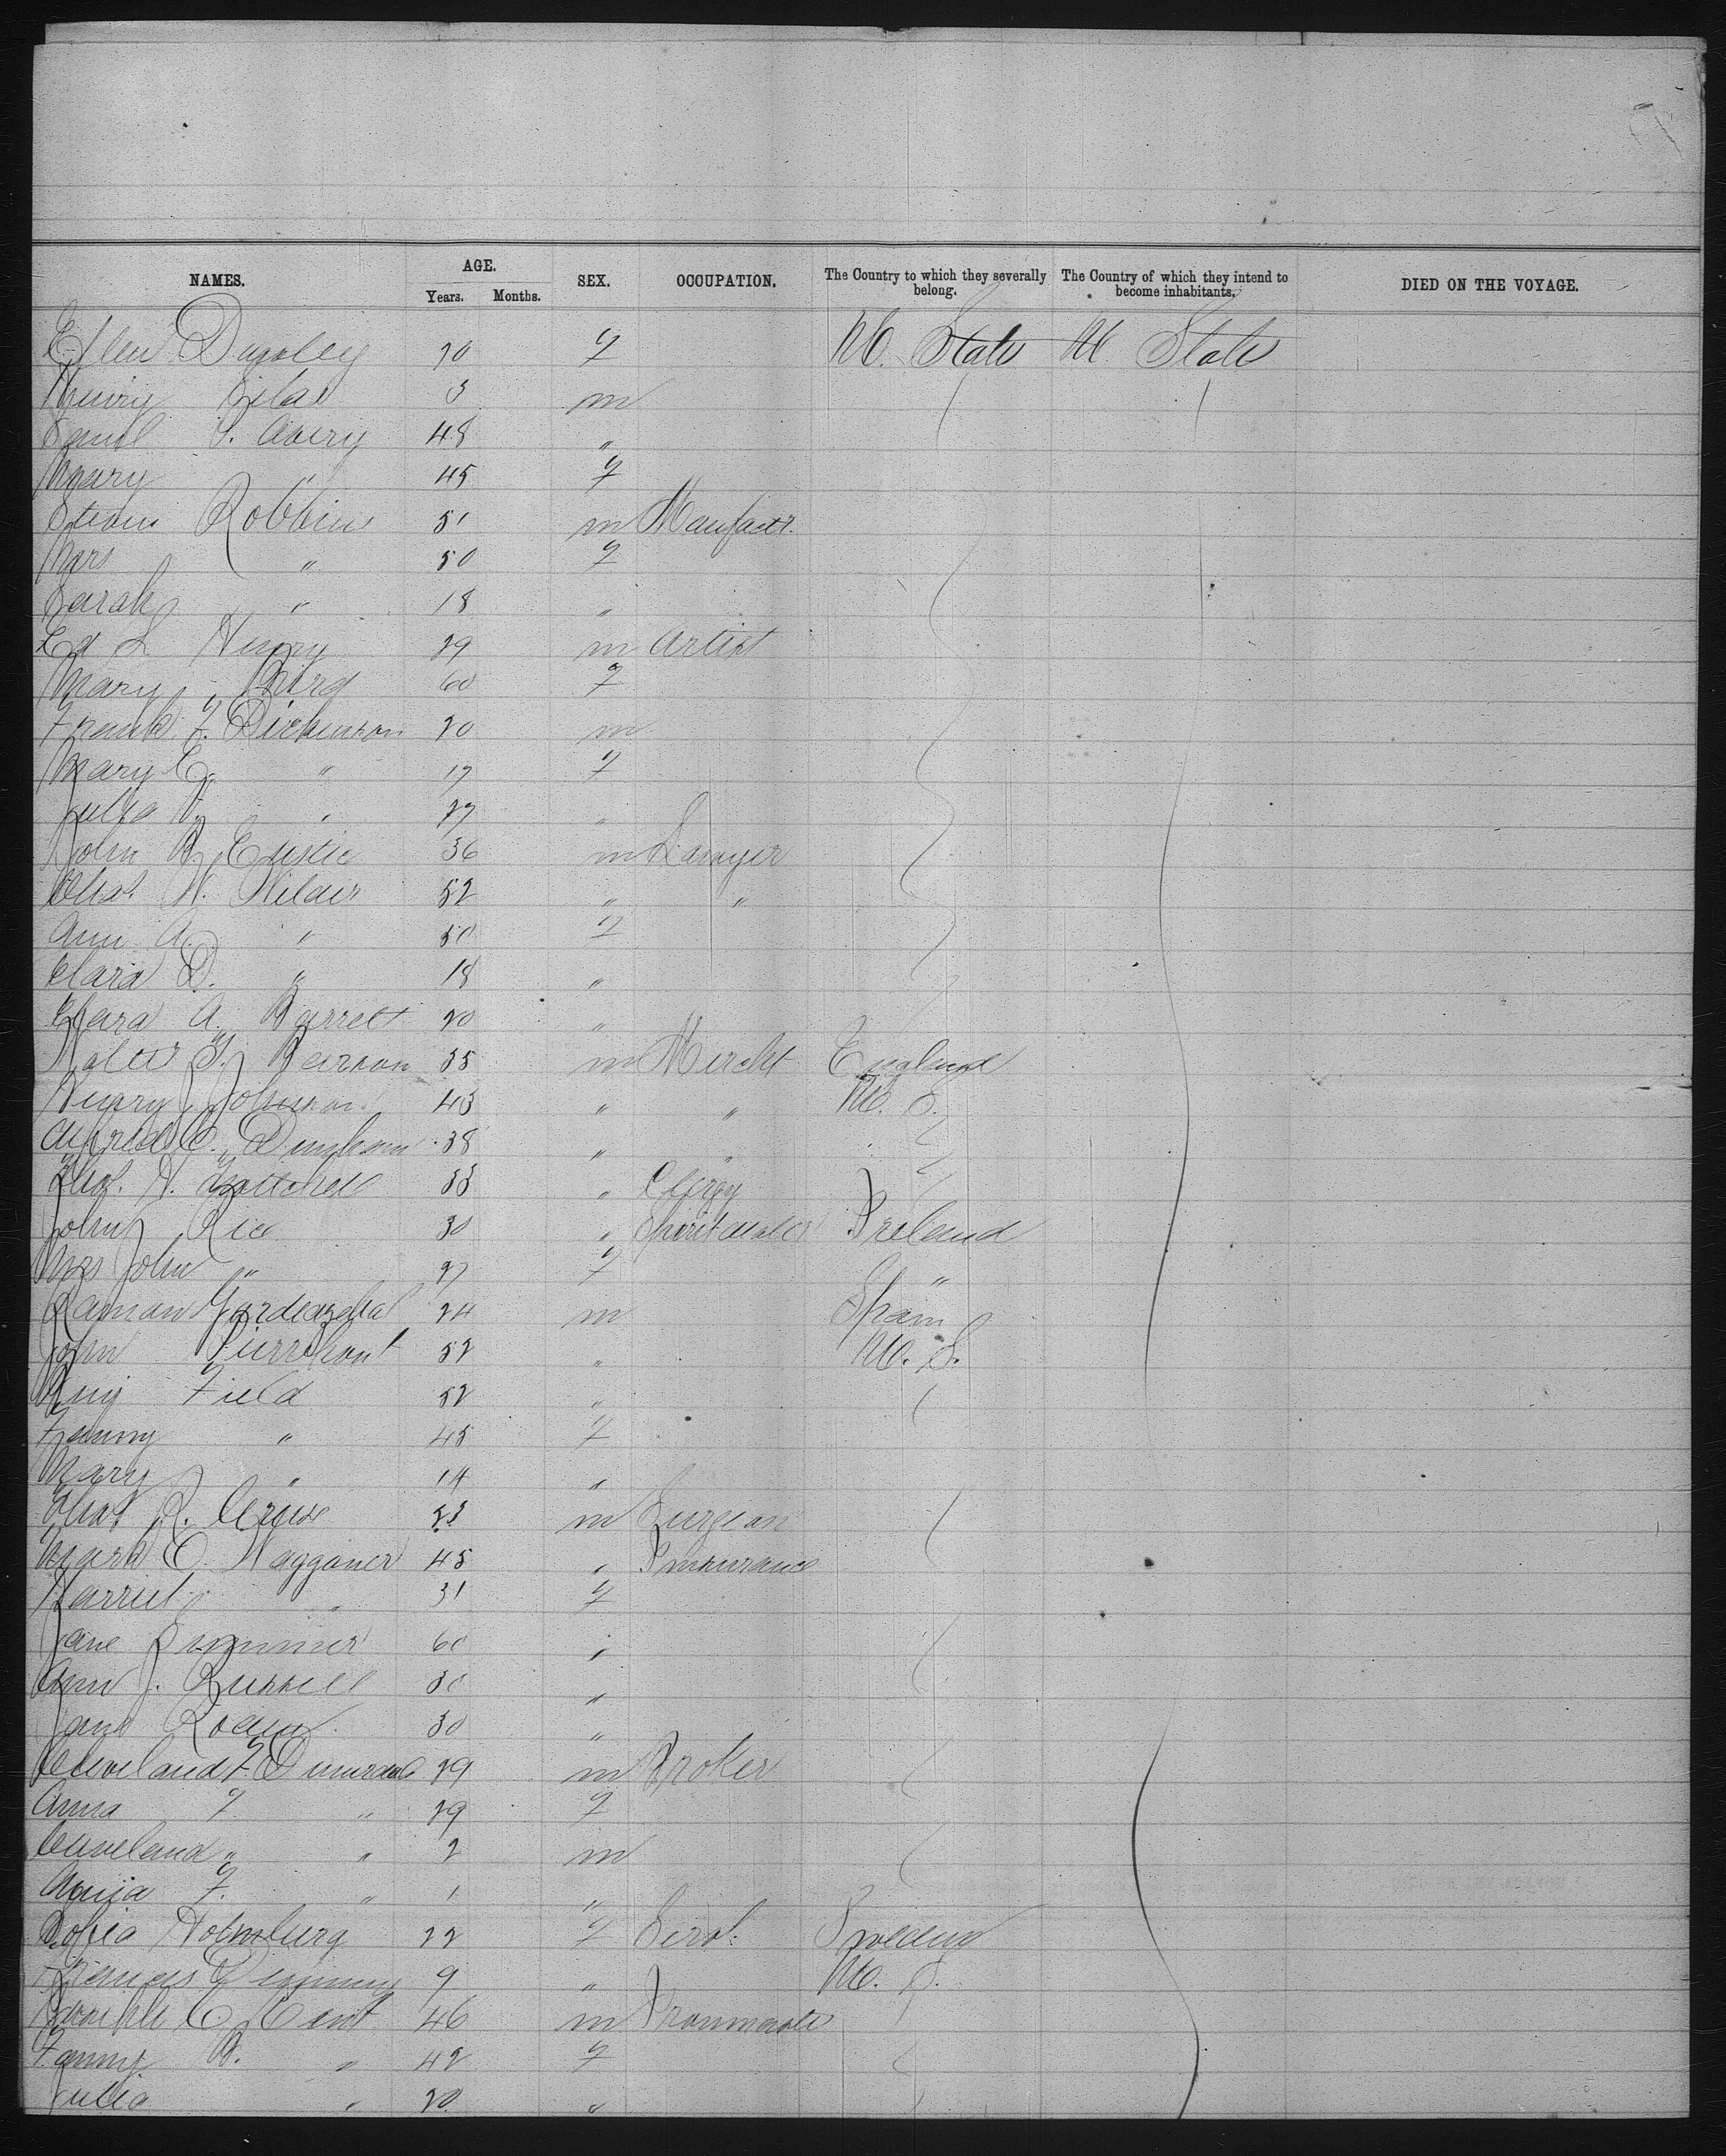 NAMES. AGE. SEX. OCCUPATION. The Country to which they severally belong. The Country of which they intend to become inhabitants. DIED ON THE VOYAGE.
Years. Months.
Ellen 20 f U. State U. State
Henry Silas 3 m
Saml P. Avery 48 "
Mary " 45 f
Robbins 51 m Manufactr.
Mrs " 50 f
Sarah " 18 "
Ed L Henry 29 m Artist
Mary Bird 60 f
Frank F. Dickinson 20 m
Mary E. " 17 f
Julia " 27 "
John B. Eustis 36 m Lawyer
Chas. W. Wilder 52 " "
Ann A. " 50 f
Clara D. " 18 "
Clara A. Barrett 20 "
Walter Pearson 35 m Mercht England
Henry Johnson 43 " " U. S.
Alfred C. Dunham 38 " "
Chas. H. 33 " Clergy
John Rice 30 " Spirit dealer Ireland
Mrs John " 27 f "
Ramon Gardeazabal 24 m Spain
John Pierrepont 52 " U. S.
Benj Field 52 "
Fanny " 45 f
Mary " 14 "
Chas R. 23 m Surgeon
Mark C. Waggoner 45 " Insurance
Harriet " 31 f
Jane 60 "
Ann J. Russell 30 "
Jane 30 "
Cleveland F. 29 m Broker
Anna F " 29 f
Cleveland " " 2 m
F. " 1 "
Sofia Holmburg 22 f Servt. Sweden
Frances 9 " U. S.
C Kent 46 m Ironmaster
Fanny B. " 42 f
Julia " 20 "